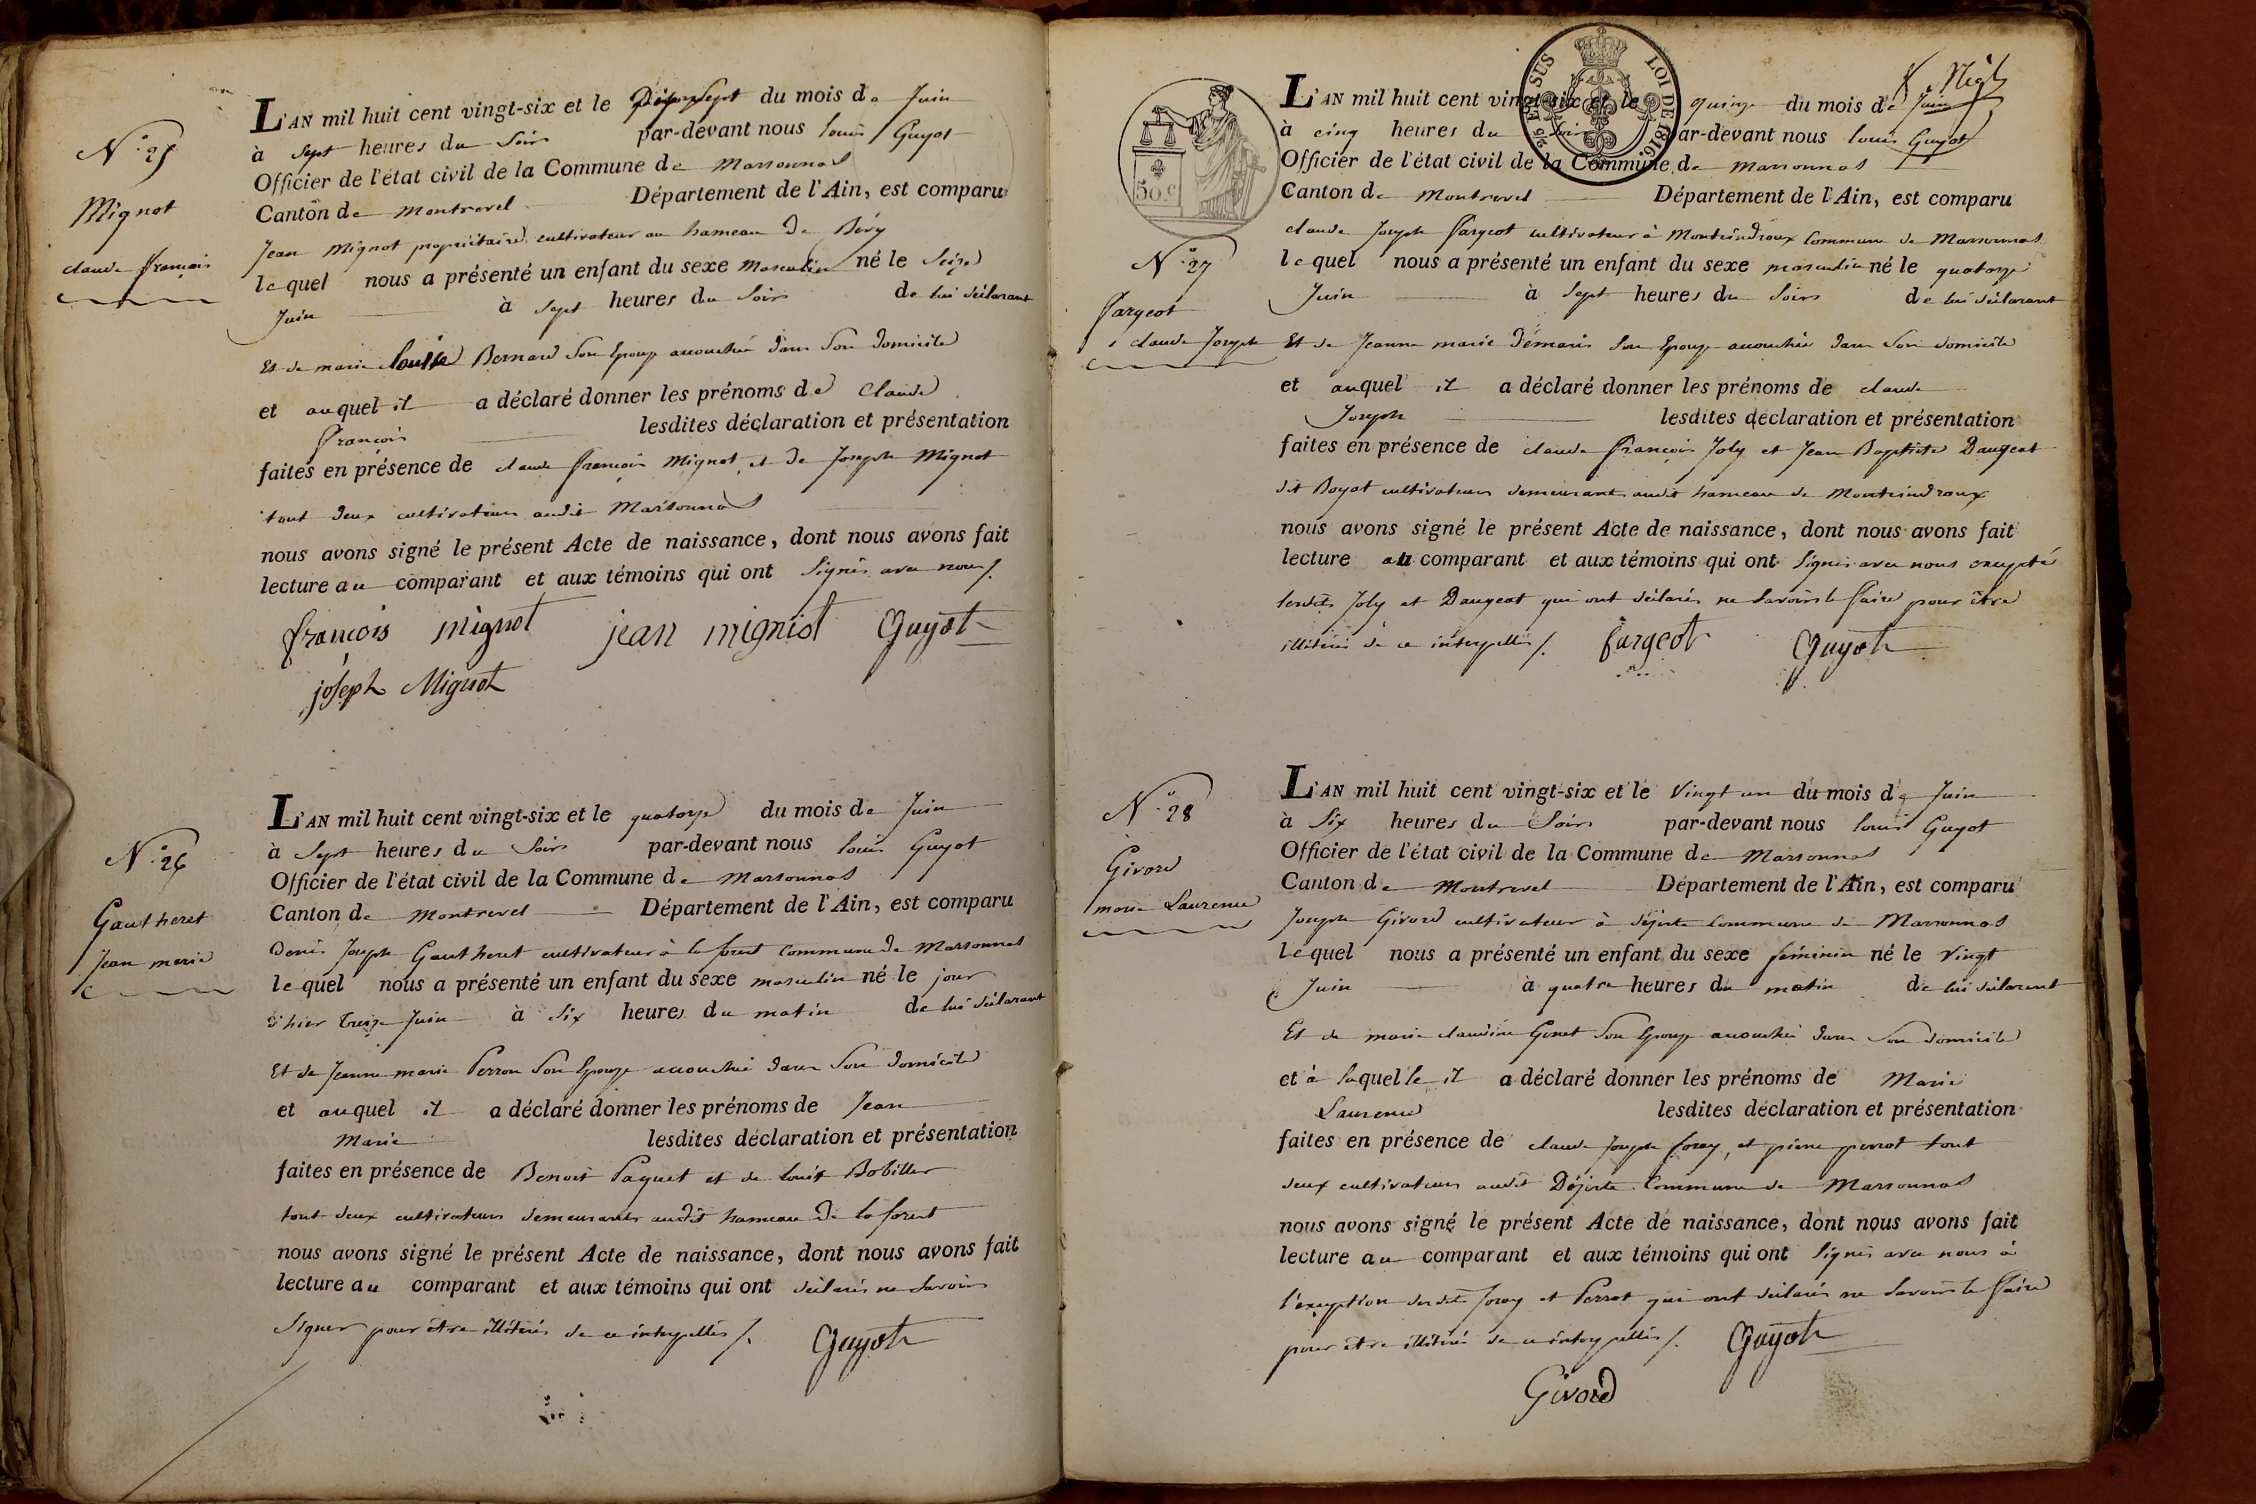 N.° 25
Mignot
claude françois
L'AN mil huit cent vingt-six et le Dix sept du mois de Juin
à sept heures du soir par-devant nous louis Guyot
Officier de l'état civil de la Commune de Marsonnas
Canton de Montrevel Département de l'Ain, est comparu
Jean Mignot propriétaire cultivateur au hameau de Bévy
lequel nous a présenté un enfant du sexe masculin né le seize
Juin à sept heures du soir de lui déclarant
Et de marie louise Bernard son Epouse accouchée dans son domicile
et auquel il a déclaré donner les prénoms de Claude
françois lesdites déclaration et présentation
faites en présence de claude françois Mignot et de Joseph Mignot
tout deux cultivateurs audit Marsonnas
nous avons signé le présent Acte de naissance, dont nous avons fait
lecture au comparant et aux témoins qui ont signés avec nous /.
françois mignot jean migniot Guyot
joseph Mignot
N.° 26
Gautheret
Jean marie
L'AN mil huit cent vingt-six et le quatorze du mois de Juin
à sept heures du soir par-devant nous louis Guyot
Officier de l'état civil de la Commune de Marsonnas
Canton de Montrevel Département de l'Ain, est comparu
Denis Joseph Gautheret cultivateur à la forest commune de Marsonnas
lequel nous a présenté un enfant du sexe masculin né le jour
d'hier treize Juin à six heures du matin de lui déclarant
Et de Jeanne marie Perron son Epouse accouchée dans son domicile
et auquel il a déclaré donner les prénoms de Jean
Marie lesdites déclaration et présentation
faites en présence de Benoit Paquet et de louis Bobiller
tout deux cultivateurs demeurants audit hameau de la forest
nous avons signé le présent Acte de naissance, dont nous avons fait
lecture au comparant et aux témoins qui ont déclarés ne savoir
signer pour être illitérés de ce interpellés /. Guyot
2/5 EN SUS LOI DE 1816.
50 c
N.° 27
fargeot
claude Joseph
L'AN mil huit cent vingt-six et le quinze du mois de Juin
à cinq heures du soir par-devant nous louis Guyot
Officier de l'état civil de la Commune de Marsonnas
Canton de Montrevel Département de l'Ain, est comparu
claude Joseph fargeot cultivateur à Montcindroux commune de Marsonnas
lequel nous a présenté un enfant du sexe masculin né le quatorze
Juin à sept heures du soir de lui déclarant
Et de Jeanne marie Démaris son Epouse accouchée dans son domicile
et auquel il a déclaré donner les prénoms de claude
Joseph lesdites déclaration et présentation
faites en présence de claude françois Joly et Jean Baptiste Daugeat
dit Boyat cultivateurs demeurants audit hameau de Montcindroux
nous avons signé le présent Acte de naissance, dont nous avons fait
lecture au comparant et aux témoins qui ont signés avec nous excepté
lesdits Joly et Daugeat qui ont déclarés ne savoir le faire pour être
illitérés de ce interpellés /. fargeot Guyot
N.° 28
Givord
marie Laurence
L'AN mil huit cent vingt-six et le vingt un du mois de Juin
à six heures du soir par-devant nous louis Guyot
Officier de l'état civil de la Commune de Marsonnas
Canton de Montrevel Département de l'Ain, est comparu
Joseph Givord cultivateur à Déjette commune de Marsonnas
lequel nous a présenté un enfant du sexe féminin né le vingt
Juin à quatre heures du matin de lui déclarant
Et de marie claudine Genet son Epouse accouchée dans son domicile
et à laquelle il a déclaré donner les prénoms de Marie
Laurence lesdites déclaration et présentation
faites en présence de claude Joseph foray, et pierre perrot tout
deux cultivateurs audit Déjette Commune de Marsonnas
nous avons signé le présent Acte de naissance, dont nous avons fait
lecture au comparant et aux témoins qui ont signés avec nous à
l'exception desdits foray et Perrot qui ont déclarés ne savoir le faire
pour être illitérés de ce interpellés /. Guyot
Givord